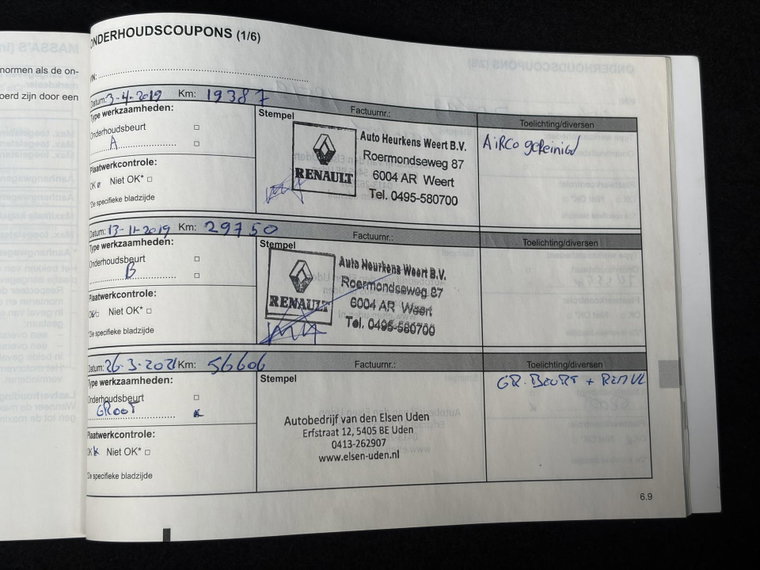 ONDERHOUDSCOUPONS (1/6)
MASSA'S
normen als de on-
oerd zijn door een
Datum: 3-4-2019 Km: 19387
Factuurnr.:
Type werkzaamheden:
Stempel
Toelichting/diversen
Onderhoudsbeurt
A
Auto Heurkens Weert B.V.
Roermondseweg 87
6004 AR Weert
Tel. 0495-580700
RENAULT
Airco gereinigd
Plaatwerkcontrole:
OK Niet OK*
*De specifieke bladzijde
Datum: 13-11-2019 Km: 29750
Factuurnr.:
Type werkzaamheden:
Stempel
Toelichting/diversen
Onderhoudsbeurt
B
Auto Heurkens Weert B.V.
Roermondseweg 87
6004 AR Weert
Tel. 0495-580700
RENAULT
Plaatwerkcontrole:
OK Niet OK*
*De specifieke bladzijde
Datum: 26-3-2021 Km: 56606
Factuurnr.:
Type werkzaamheden:
Stempel
Toelichting/diversen
Onderhoudsbeurt
GROOT
GR. BEURT +
Autobedrijf van den Elsen Uden
Erfstraat 12, 5405 BE Uden
0413-262907
www.elsen-uden.nl
Plaatwerkcontrole:
OK Niet OK*
*De specifieke bladzijde
6.9